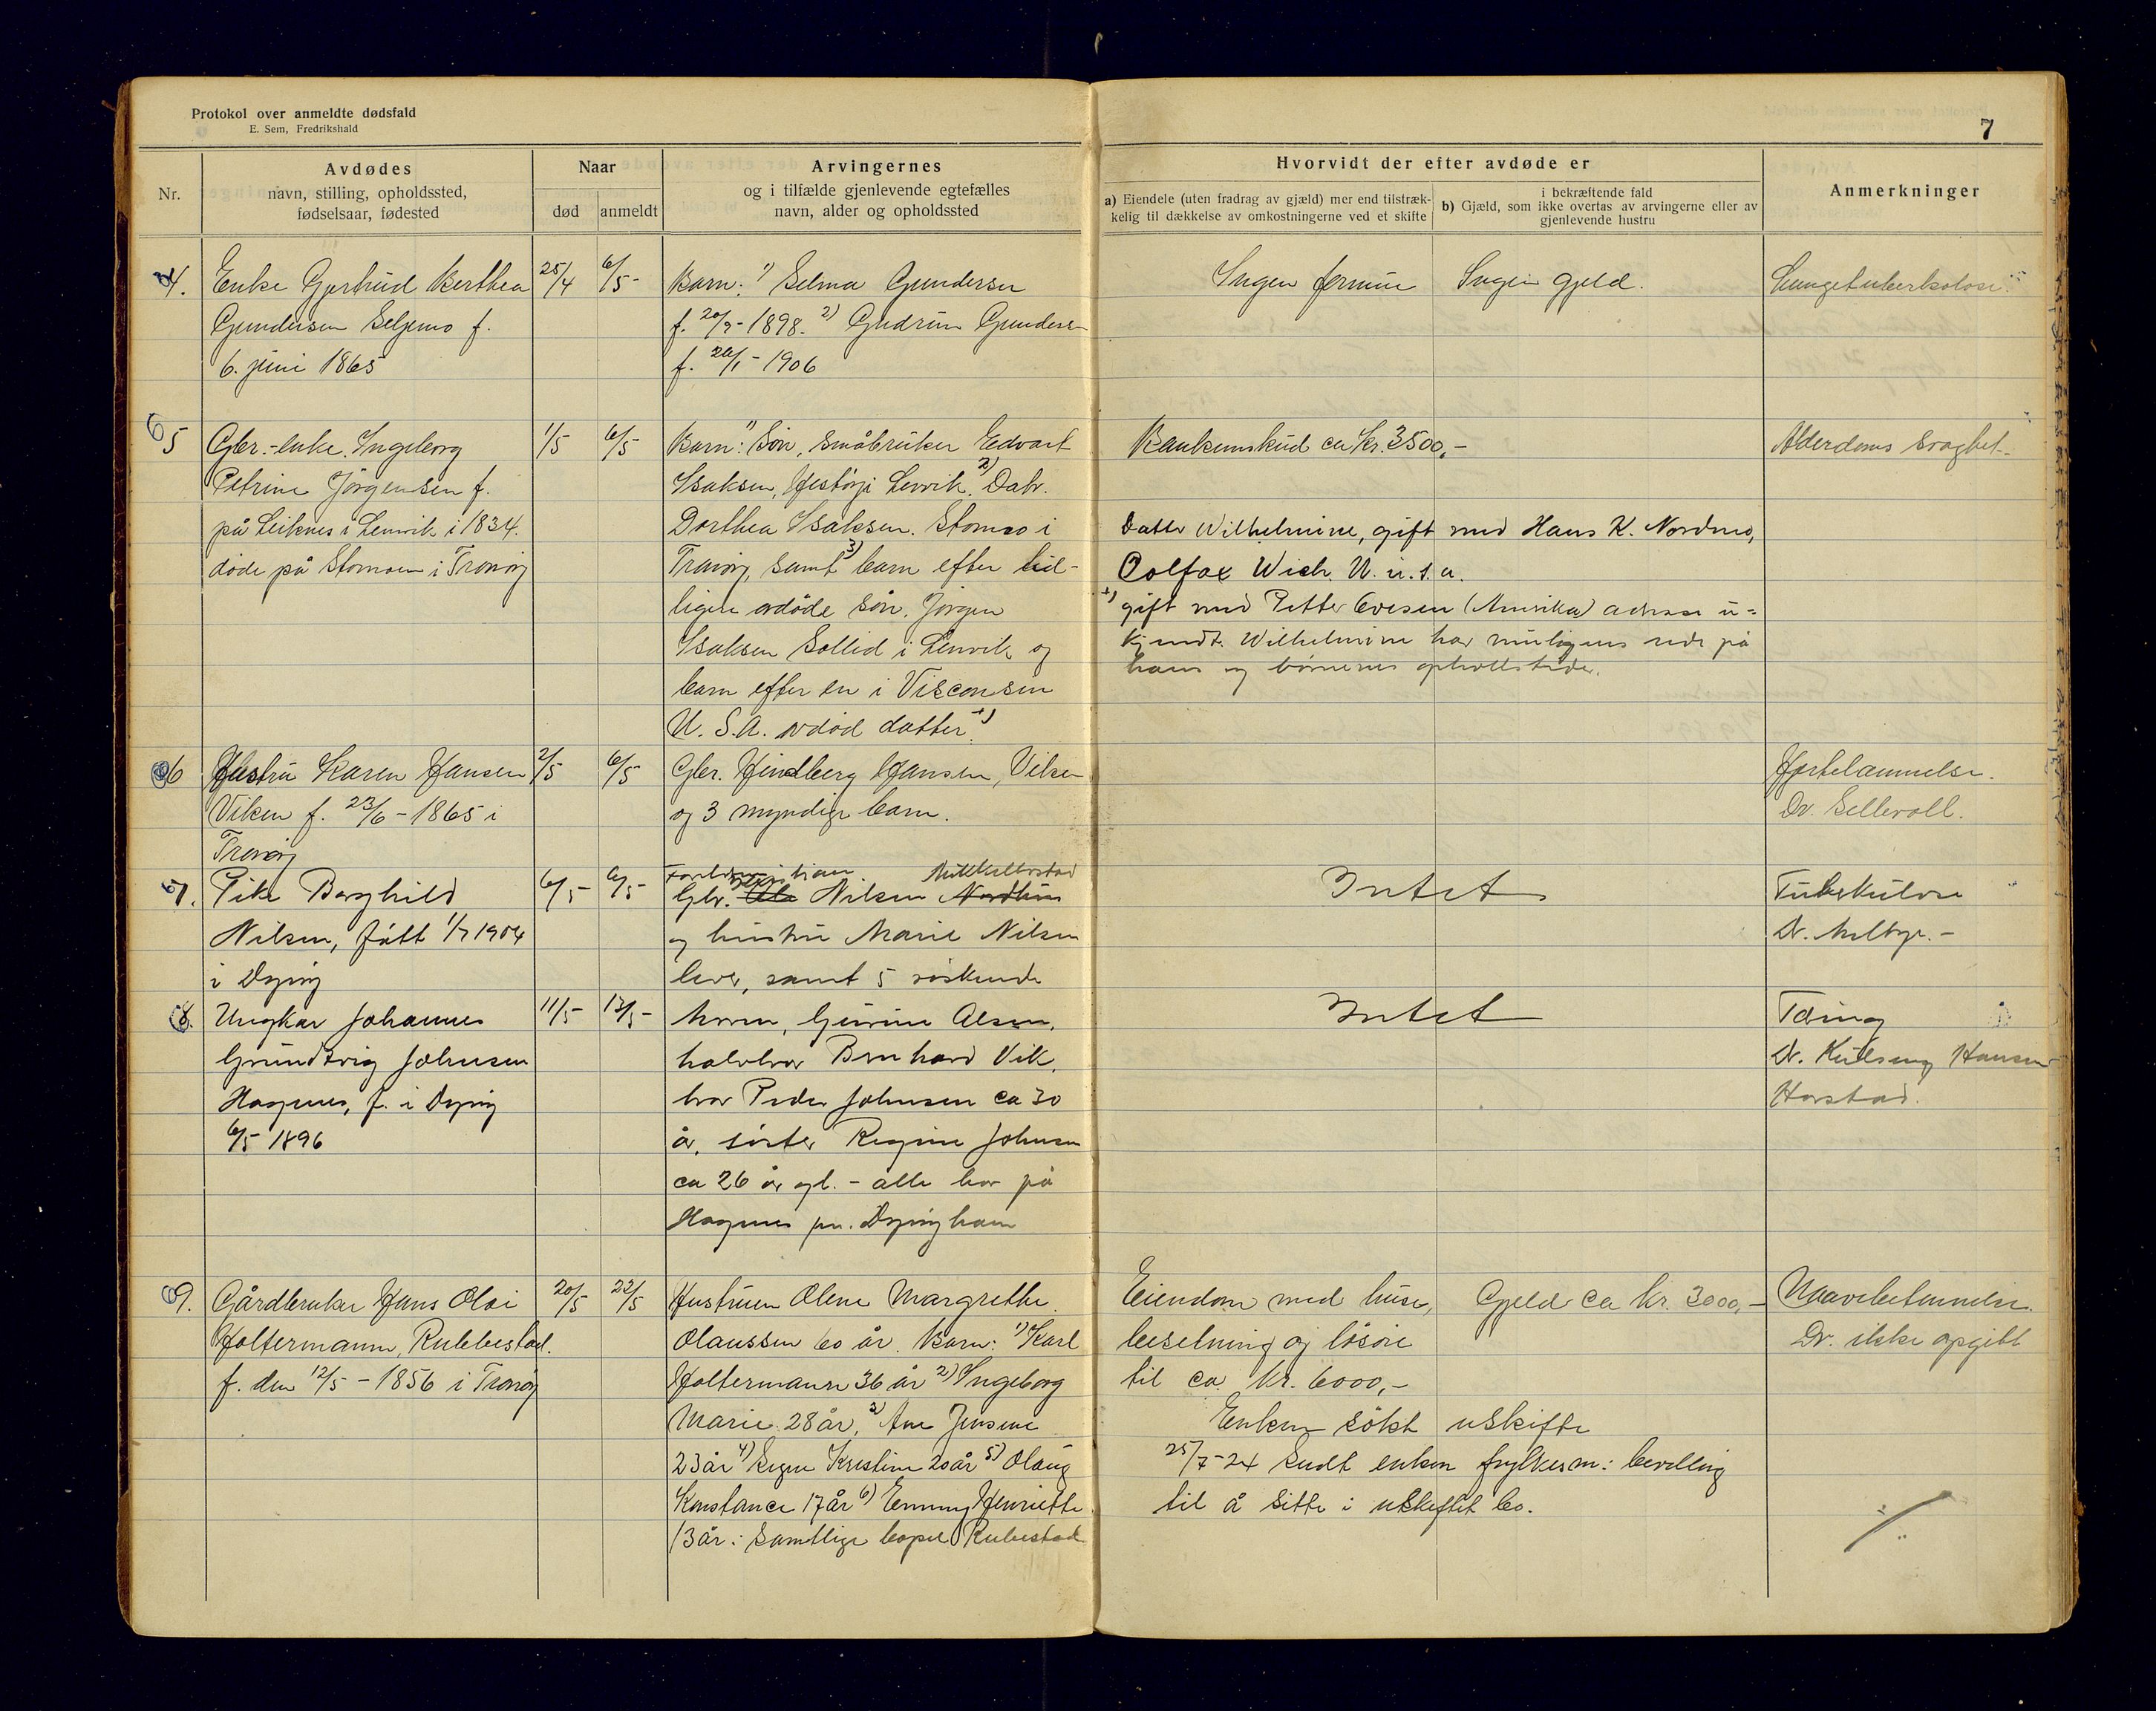 Protokol over anmeldte dødsfald
E. Sem, Fredrikshald
7
Nr.
Avdødes
navn, stilling, opholdssted,
fødselsaar, fødested
Naar
død
anmeldt
Arvingernes
og i tilfælde gjenlevende egtefælles
navn, alder og opholdssted
Hvorvidt der efter avdøde er
a) Eiendele (uten fradrag av gjæld) mer end tilstræk-
kelig til dækkelse av omkostningerne ved et skifte
i bekræftende fald
b) Gjæld, som ikke overtas av arvingerne eller av
gjenlevende hustru
Anmerkninger
4.
Enke Gjertrud Berthea
Gundersen Seljemo f.
6. juni 1865
25/4
6/5-
Barn: 1) Selma Gundersen
f. 20/9-1898. 2) Gudrun Gunders-
f. 20/1-1906
Ingen formue
Ingen gjeld.
Lungetuberkolose.
5
Gbr.-enke. Ingeborg
Petrine Jørgensen f.
på Leiknes i Lenvik i 1834.
døde på Stomoen i Tranøy
1/5
6/5-
Barn: 1) Søn, småbruker Edvart
Isaksen, Gjestøy i Lenvik. 2) Datr.
Dorthea Isaksen. Stomo i
Tranøy, samt 3) barn efter tid-
ligere avdøde søn. Jørgen
Isaksen Sollid i Lenvik og
barn efter en i Visconsin
U. S.A. avdød datter +)
Bankinnskud ca kr. 3500,-
Datter Wilhelmine, gift med Hans K. Nordmo,
Colfax Wich. U. u. s. a.
+) gift med Petter Evesen (Amerika) adresse u-
kjendt. Wilhelmine har muligens rede på
hans og børnenes opholdssteder.
Alderdoms svaghet.
6
Hustru Karen Hansen
Viken f. 23/6-1865 i
Tranøy
2/5
6/5
Gbr. Hindberg Hansen, Viken
og 3 myndige barn.
Hjertelammelse.
Dr. Sellevoll.
7.
Pike Borghild
Nilsen, født 1/7 1904
i Dyrøy
6/5-
6/5-
Foreldre Kristian Mikkelbostad
Gbr. Ola Nilsen Nordhus
og hustru Marie Nilsen
lever, samt 5 søskende
Intet
Tuberkulose
Dr. Melbye.-
8.
Ungkar Johannes
Grundtvig Johnsen
Hagenes, f. i Dyrøy
6/5 1896
11/5-
13/5-
Moren, Gurine Olsen,
halvbror Bernhard Vik,
bror Peder Johnsen ca 30
år, søster Regine Johnsen
ca 26 år gl. - alle bor på
Hagenes pr. Dyrøyhavn
Intet
Tæring
Dr. Hansen
Harstad.
9.
Gårdbruker Hans Olai
Holtermann, Rubbestad.
f. den 12/5-1856 i Tranøy
20/5
22/5
Hustruen Olene Margrethe
Olaussen 60 år. Barn: 1) Karl
Holtermann 36 år 2) Ingeborg
Marie 28 år, 3) Ane Jensine
23 år 4) Signe Kristine 20 år 5) Olaug
Konstance 17 år 6) Emmy Henriette
13 år: Samtlige bopel Rubestad
Eiendom med huse,
beselning og løsøre
til ca kr. 6000,-
Gjeld ca kr. 3000,-
Enken søkt uskifte
25/7-24 sendt enken fylkesm: bevilling
til å sitte i uskiftet bo.
Mavebetennelse.
Dr. ikke opgitt